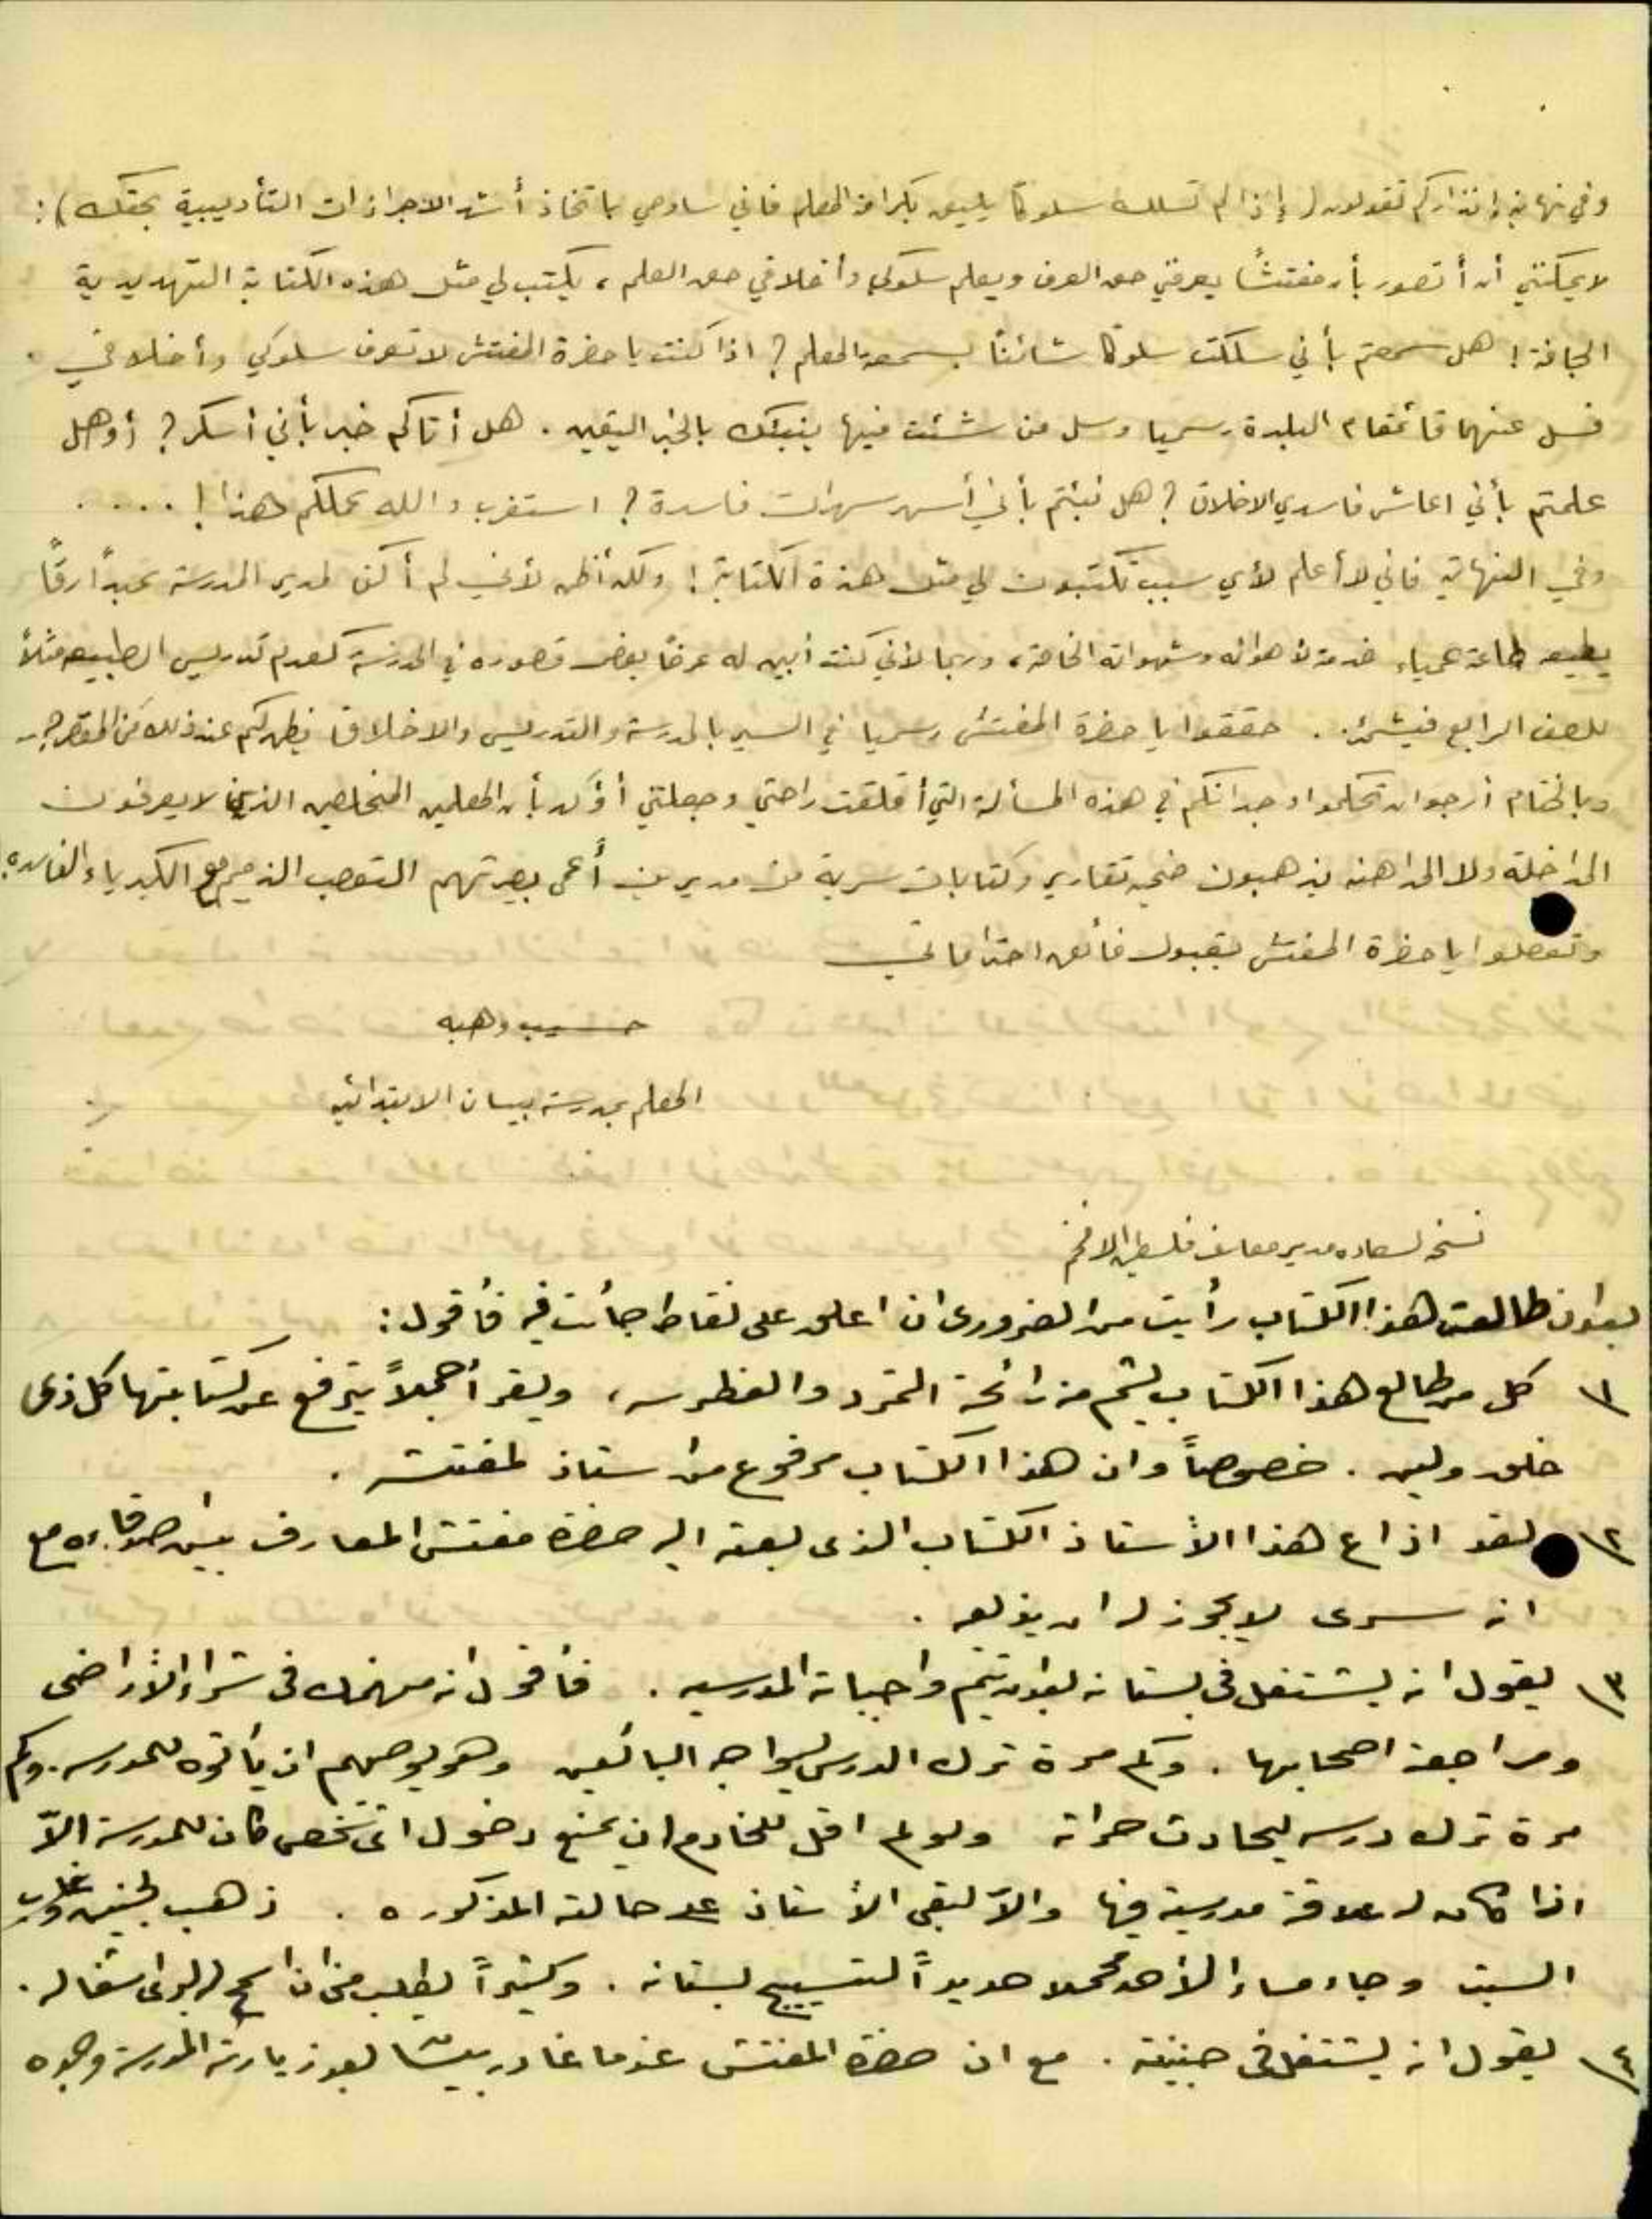 وفي نهاية إنذاركم تقولون (إذا لم تسلك سلوكا يليق بكرامة المعلم فاني سأوصي باتخاذ أشد الاجراءات التأديبية بحقك):
لا يمكنني أن أتصور بأن مفتشًا يعرفني حق العرف ويعلم سلوكي وأخلاقي حق العلم، يكتب لي مثل هذه الكتابة التهديدية
الجافة! هل سمعتم بأني سلكت سلوكا شائنًا بسمعة المعلم؟ اذا كنت يا حضرة المفتش لا تعرف سلوكي وأخلاقي
فسل عنهما قائمقام البلدة رسميا وسل من شئت فيها ينبئك بالخبر اليقين. هل أتاكم خبر بأني أسكر؟ أو هل
علمتم بأني اعاشر فاسدي الاخلاق؟ هل نبئتم بأني أسهر سهرات فاسدة؟ استغرب والله عملكم هذا! . . . .
وفي النهاية فاني لا أعلم لأي سبب تكتبون لي مثل هذه الكتابة! ولكن أظن لأني لم أكن لمدير المدرسة عبدًا رقًا
يطيعه طاعة عمياء خدمة لأهوائه وشهواته الخاصة، وربما لأني كنت أبين له عرضًا بعض قصوره في المدرسة كعدم تدريس الطبيعة مثلاً
للصف الرابع . حققوا يا حضرة المفتش رسميا في السير بالمدرسة والتدريس والاخلاق فيظهر لكم عند ذلك من المقصر؟.
وبالختام أرجو ان تحكموا وجدانكم في هذه المسألة التي أقلقت راحتي وجعلتني أؤكد بأن المعلمين المخلصين الذين لا يعرفون
المداخلة ولا المداهنة يذهبون ضحية تقارير وكتابات سرية من مديرين أعمى بصيرتهم التعصب الذميم مع الكبرياء الفاسدة.
وتفضلوا يا حضرة المفتش بقبول فائق احتراماتي
حسيب وهبه
المعلم بمدرسة بيسان الابتدائيه
نسخة لسعادة مدير معارف فلسطين الافخم
بعد ان طالعت هذا الكتاب رأيت من الضرورى ان اعلق على نقاط جائت فيه فأقول:
١ كل من طالع هذا الكتاب يشتم منه رائحة التمرد والغطرسه، ويقرأ جملاً يترفع عن كتابتها كل ذى
خلق ولين. خصوصاً وان هذا الكتاب مرفوع من استاذ لمفتشه.
٢ لقد اذاع هذا الأستاذ الكتاب الذى بعثه اليه حضرة مفتش المعارف بين اصدقاءه مع
انه سرى لا يجوز له ان يذيعه.
٣ يقول انه يشتغل فى بستانه بعد ان يتمم واجباته المدرسيه. فأقول انه منهمك فى شراء الأراضى
ومراجعة اصحابها. وكم مرة ترك الدرس ليواجه البائعين وهو يوصيهم ان يأتوه للمدرسه. وكم
مرة ترك درسه ليحادث حراثه ولو لم اقل للخادم ان يمنع دخول اى شخص كان للمدرسة الاّ
اذا كان له علاقة مدرسية فيها والاّ لبقى الأستاذ على حالته المذكوره. ذهب لجنين
السبت وجاء مساء الأحد محملا حديداً لتسييج بستانه. وكثيراً يطلب منى ان اسمح له ليرى اشغاله.
٤ يقول انه يشتغل فى جنينته. مع ان حضرة المفتش عندما غادر بيسان بعد زيارته المدرسة وجده